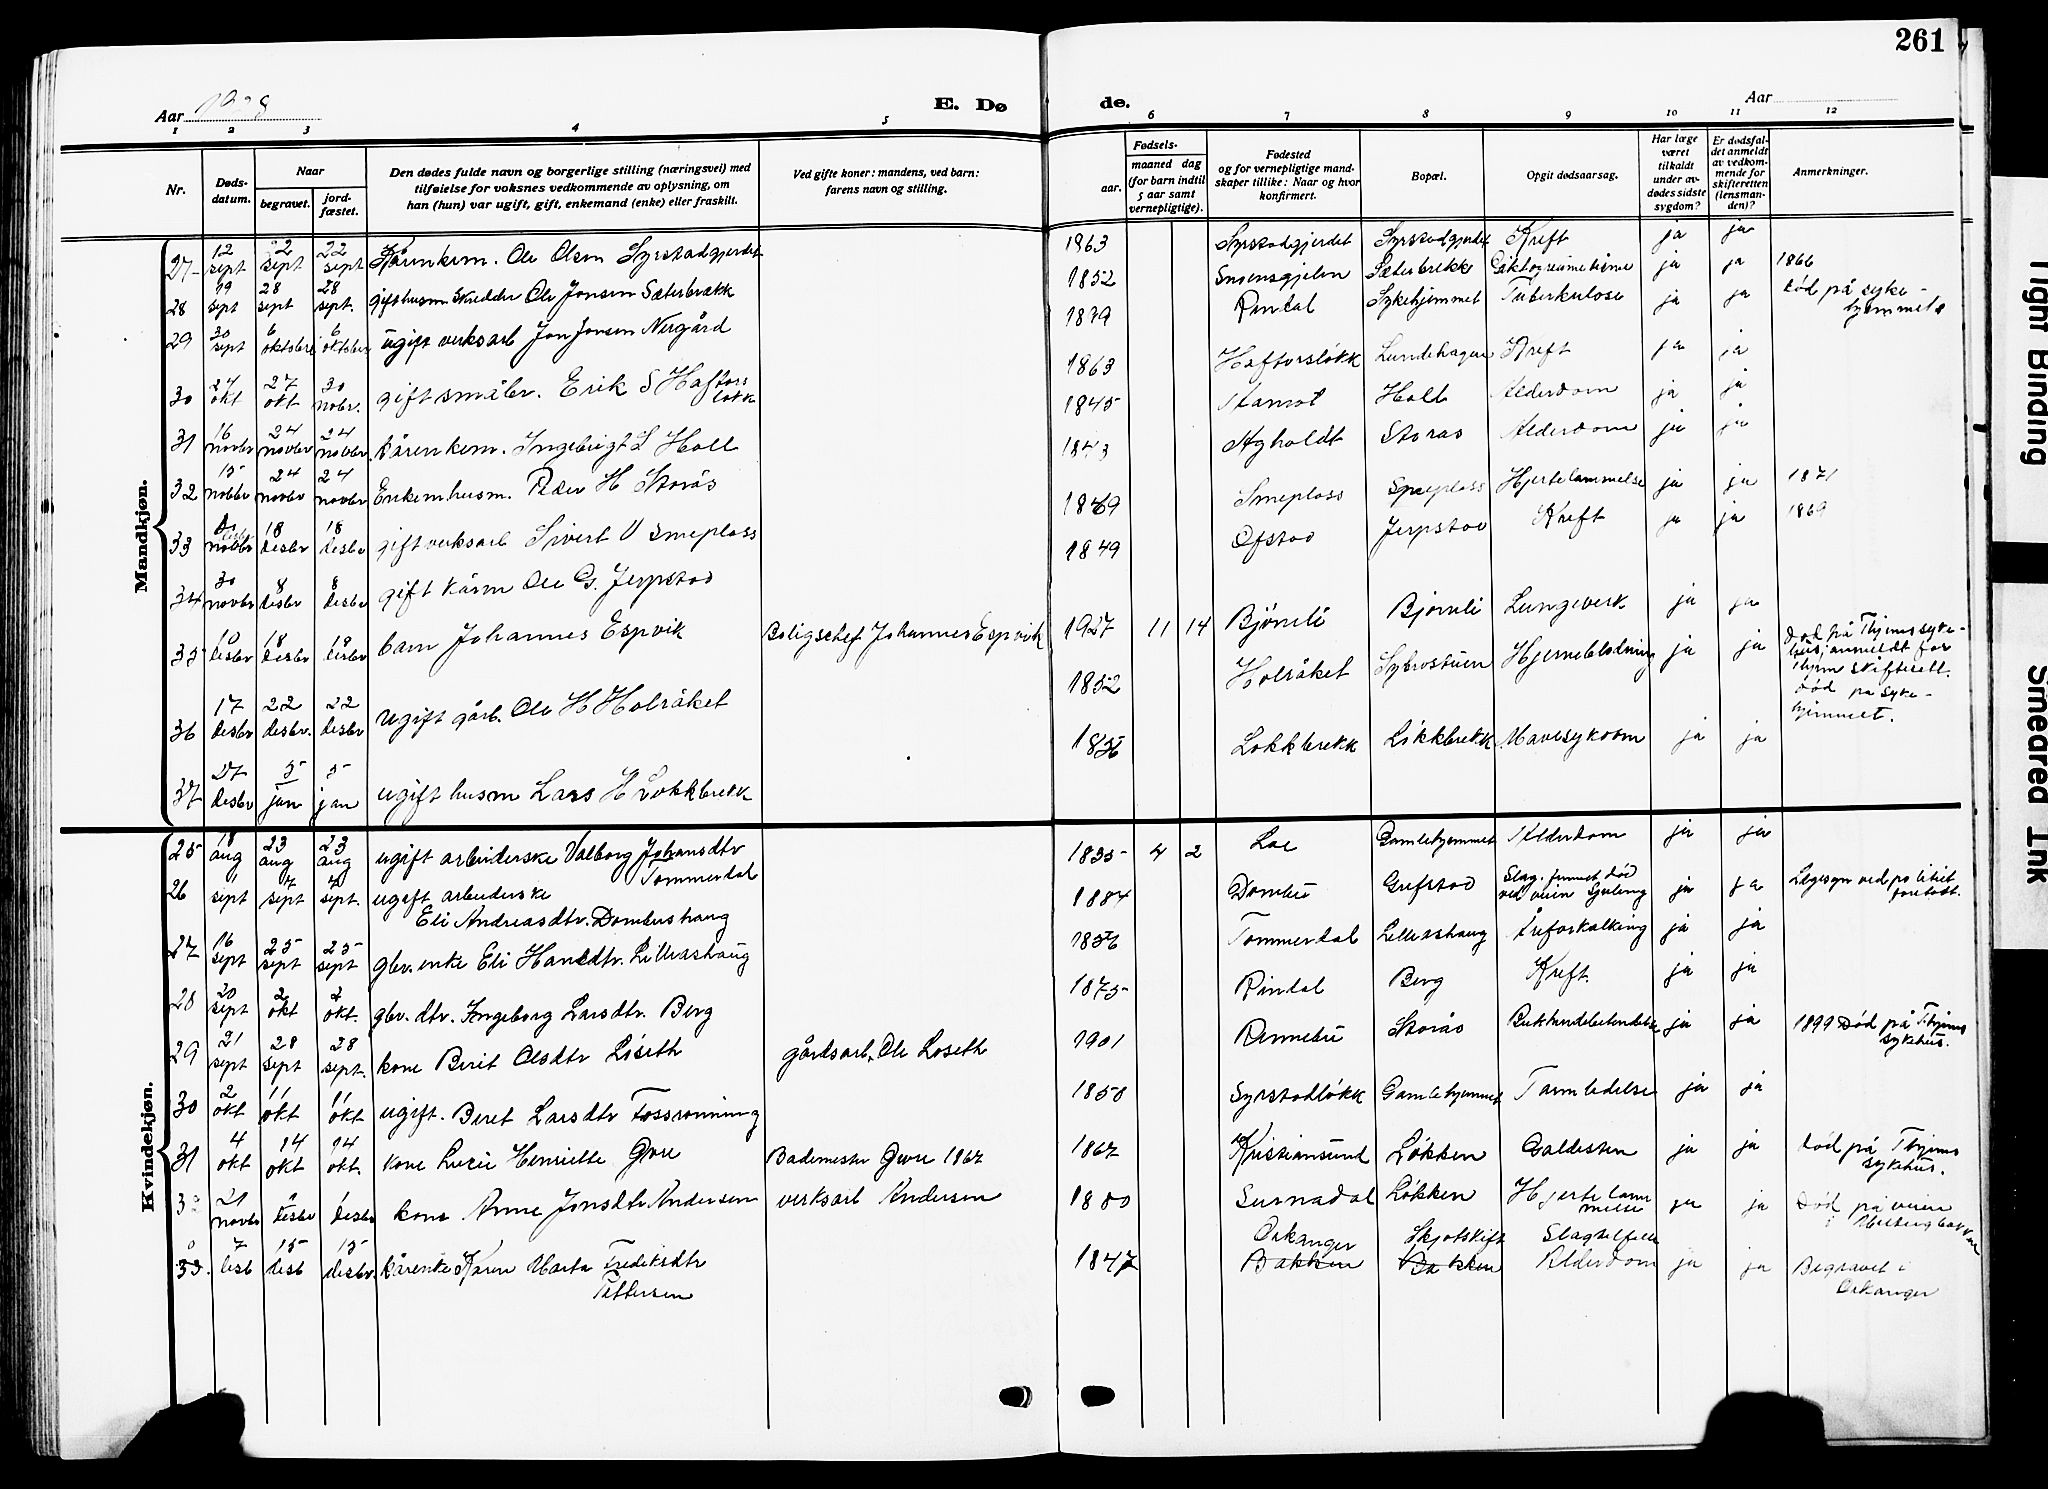 261
Aar 1928
E. Dø
de.
Aar
1 2 3 4 5 6 7 8 9 10 11 12
Nr.
Døds-
datum.
Naar
begravet.
jord-
fæstet.
Den dødes fulde navn og borgerlige stilling (næringsvei) med
tilføielse for voksnes vedkommende av oplysning, om
han (hun) var ugift, gift, enkemand (enke) eller fraskilt.
Ved gifte koner: mandens, ved barn:
farens navn og stilling.
Fødsels-
aar.
maaned dag
(for barn indtil
5 aar samt
vernepligtige).
Fødested
og for vernepligtige mand-
skaper tillike: Naar og hvor
konfirmert.
Bopæl.
Opgit dødsaarsag.
Har læge
været
tilkaldt
under av-
dødes sidste
sygdom?
Er dødsfal-
det anmeldt
av vedkom-
mende for
skifteretten
(lensman-
den)?
Anmerkninger.
Mandkjøn.
27 12 sept 22 sept Kårenkem. Ole Olsen Syrstadgjerdet 1863 Syrstadgjerdet Syrstadgjerdet Kreft ja ja
28 19 sept 28 sept 28 sept. gift husm Skredder Ole Jonsen Sæterbrækk 1852 Sæterbrekk ja ja 1866
29 30 sept 6 oktober 6 oktober ugift verksarb Jon Jonsen Nergård 1879 Rindal Sykehjemmet Tuberkulose ja ja død på syke-
hjemmet
30 27 okt 27 okt 30 nobr. gift småbr. Erik S Haftors
løkk 1863 Haftorsløkk Lundehagen Kreft ja ja
31 16 novbr 24 novbr 24 novbr. kårenkem. Ingebrigt L Holl 1845 Holl Alderdom ja ja
32 15 nobbr 24 novbr 24 novbr Enkem husm. Peder H Storås 1843 Storås Alderdom ja ja
33 18 desbr 18 desbr gift verksarb Sivert O Smeplass 1869 Smeplass Hjertelammelse ja ja 1871
34 30 novbr 8 desbr 8 desbr gift kårm Ole G. Jerpstad 1849 Ofstad Jerpstad Kreft ja ja 1869
35 10 desbr 18 desbr 18 desbr barn Johannes Espvik Boligschef Johannes Espvik 1927 11 14 Bjørnli Bjørnli Lungeverk ja ja
36 17 desbr 22 desbr. 22 desbr ugift gårb. Ole H Holsåket 1852 Holsåket Hjerneblødning ja ja død på Thjems syke-
hus, anmeldt for
Thjem skifterett.
død på syke-
hjemmet.
37 27 desbr 5 jan 5 jan ugift husm Lars H Løkkbrekk 1856 Løkkbrekk Løkkbrekk Mavesykdom ja ja
Kvindekjøn.
25 18 aug 23 aug 23 aug ugift arbeiderske Valborg Johansdtr
Tommerdal 1835 4 2 Loe Gamlehjemmet Alderdom ja ja
26 1 sept 7 sept 7 sept. ugift arbeiderske
Eli Andreasdtr. Domlushaug 1884 Domlu Grefstad Slag. funnet død
ved veien ja ja Lægesyn ved politiet
foretatt.
27 16 sept 25 sept 25 sept gbr. enke Eli Hansdtr. Lilleashaug 1856 Tommerdal Lilleashaug Åreforkalkning ja ja
28 20 sept 2 okt 2 okt. gbr. dtr. Ingeborg Larsdtr. Berg 1875 Rindal Berg Kreft. ja ja
29 21 sept 28 sept 28 sept. kone Berit Olsdtr Løseth gårdsarb. Ole Løseth 1901 Rennebu Storås ja ja 1899 Død på Thjems
sykehus.
30 2 okt 11 okt 11 okt ugift. Beret Larsdtr Fossrønning 1850 Syrstadløkk Gamlehjemmet ja ja
31 4 okt 14 okt 14 okt. kone Lucie Henriette Gvre Bademester Gvre 1867 1867 Kristiansund Løkken Galdesten ja ja død på Thjems
sykehus.
32 21 novbr desbr desbr kone Anne Jonsdtr Andersen verksarb Andersen 1880 Surnadal Løkken Hjertelam
melse ja ja Død på veien
33. 7 desb 15 desb 15 desbr. kårenke Karen Marta Fredriksdtr
Pettersen 1847 Orkanger
Bakken Skjøtskift
Bakken Slagtilfelle
Alderdom ja ja Begravet i
Orkanger
Tight Binding
Smeared Ink